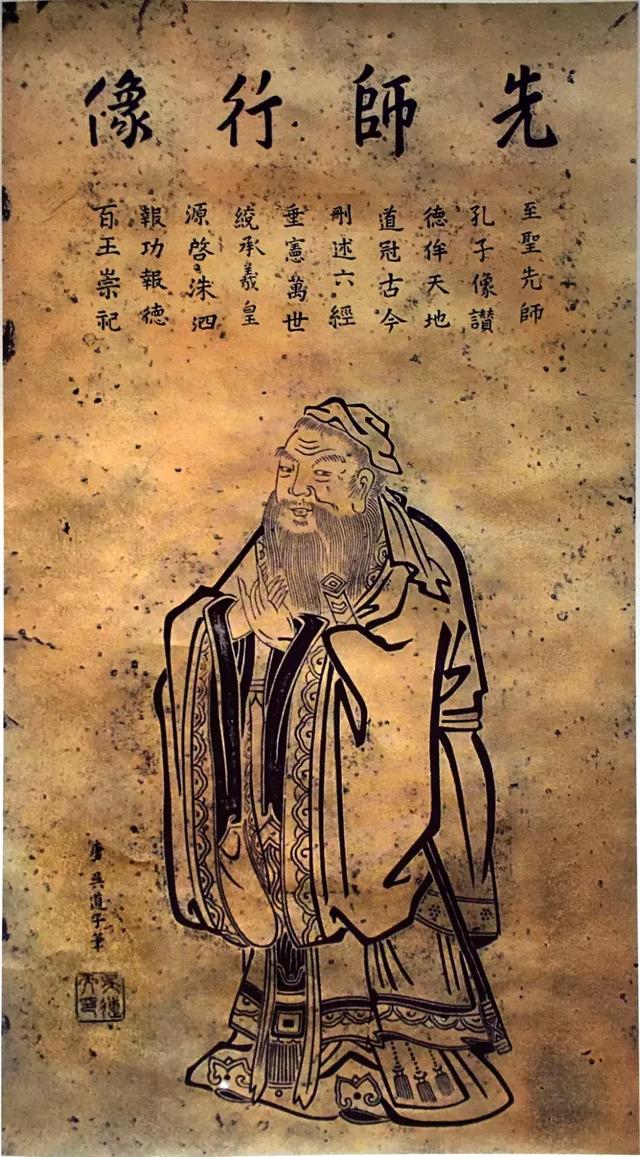 先師行像
至聖先師
孔子像讚
德侔天地
道冠古今
刪述六經
垂憲萬世
統承羲皇
源啓洙泗
報功報德
百王崇祀
唐吳道子筆